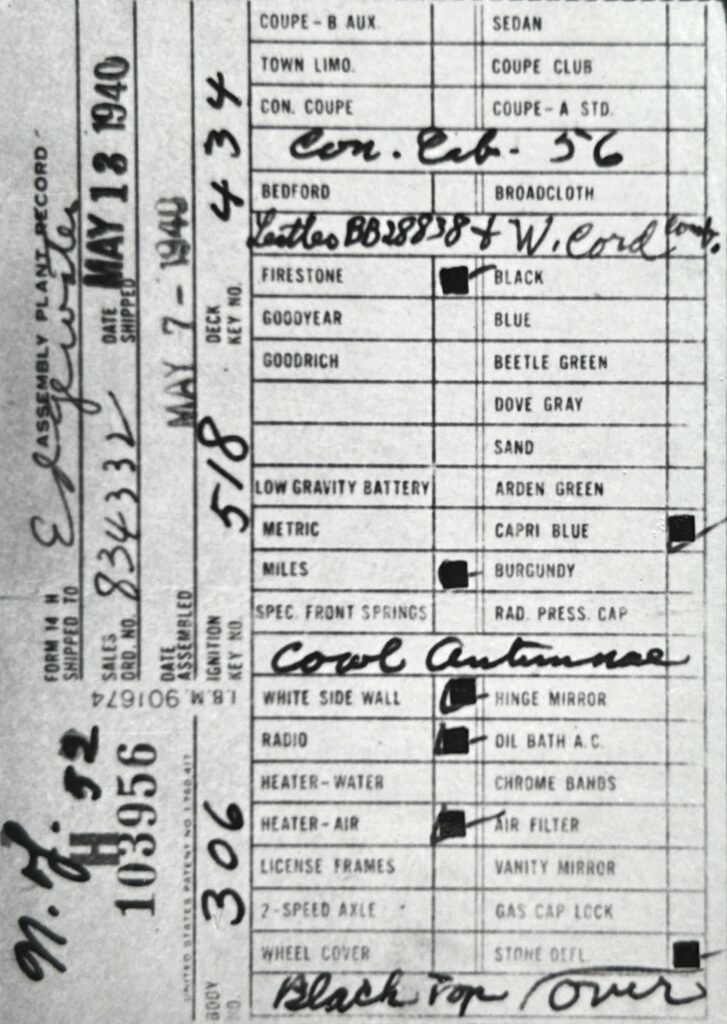 COUPE-B AUX. SEDAN
TOWN LIMO. COUPE CLUB
CON. COUPE COUPE-A STD.
Con. Cab. 56
BEDFORD BROADCLOTH
BB28838 + W. Cord Comb.
FIRESTONE BLACK
GOODYEAR BLUE
GOODRICH BEETLE GREEN
DOVE GRAY
SAND
LOW GRAVITY BATTERY ARDEN GREEN
METRIC CAPRI BLUE
MILES BURGUNDY
SPEC. FRONT SPRINGS RAD. PRESS. CAP
Cowl Antinnae
WHITE SIDE WALL HINGE MIRROR
RADIO OIL BATH A.C.
HEATER-WATER CHROME BANDS
HEATER-AIR AIR FILTER
LICENSE FRAMES VANITY MIRROR
2-SPEED AXLE GAS CAP LOCK
WHEEL COVER STONE DEFL.
Black Top Over
ASSEMBLY PLANT RECORD
FORM 14 H
SHIPPED TO Edgewater
SALES ORD. NO. 834332 DATE SHIPPED MAY 13 1940
DATE ASSEMBLED MAY 7-1940
IGNITION KEY NO. 518 DECK KEY NO. 434
I.B.M. 901674
N.Y. 52
H
103956
UNITED STATES PATENT NO. 1,780,417
BODY NO. 306